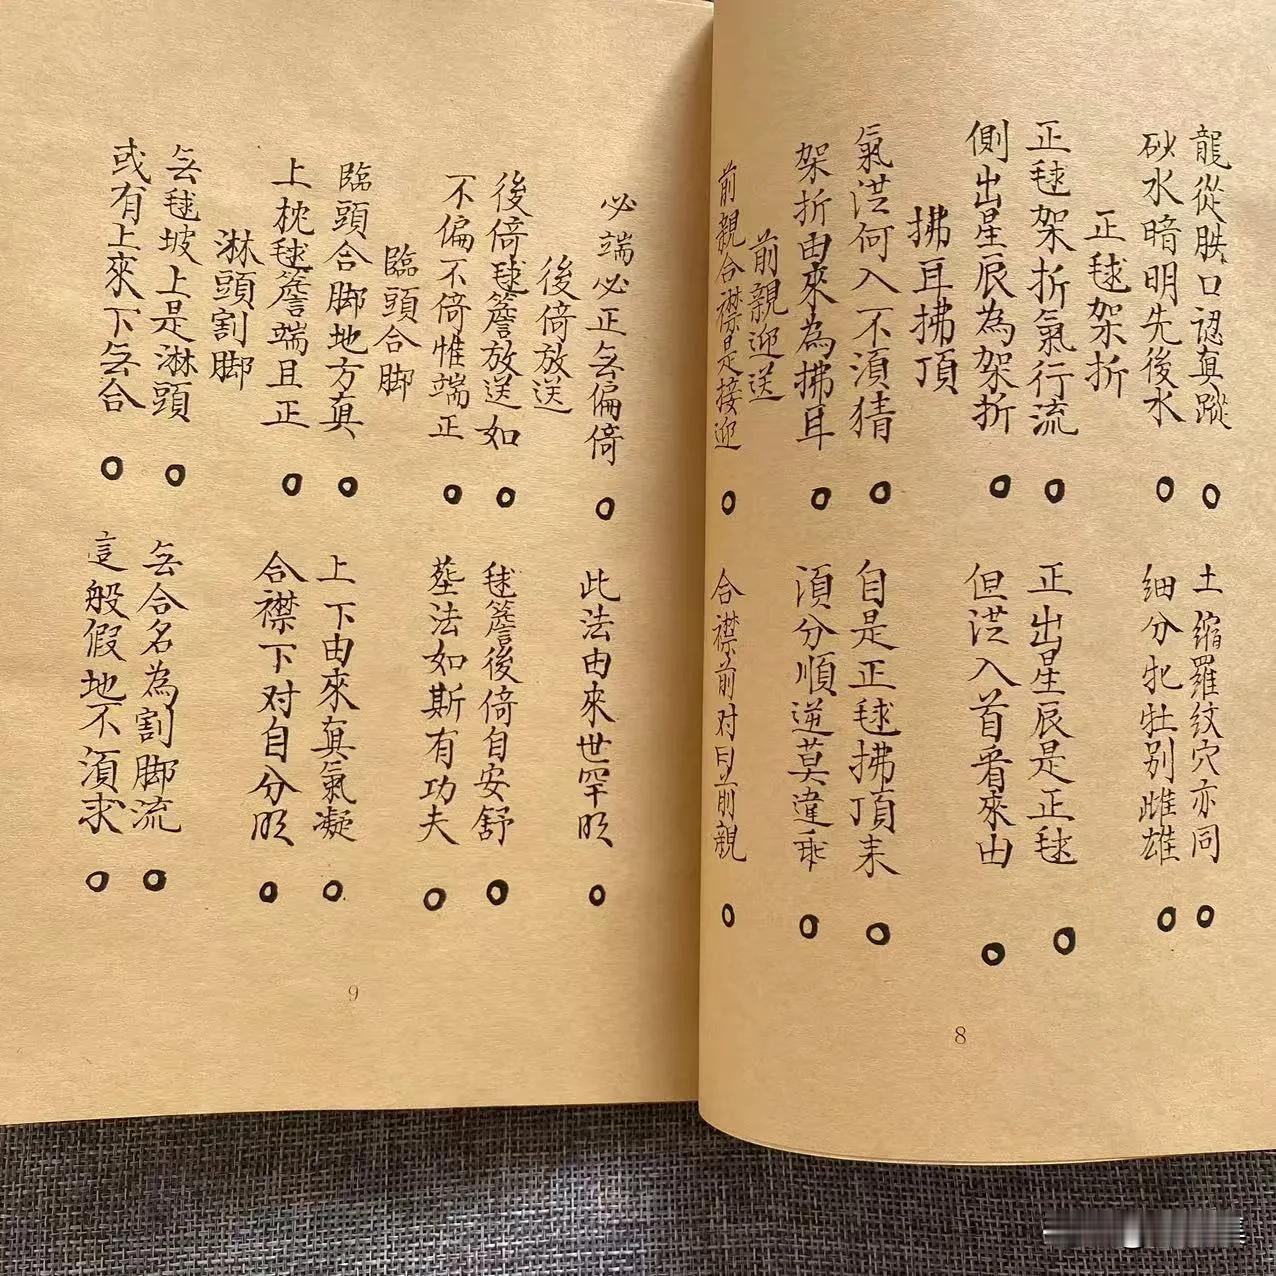 龍從肤口認真蹤。土缩羅纹穴亦同。
砂水暗明先後水。细分牝牡别雌雄。
正毬架折
正毬架折氣行流。正出星辰是正毬。
側出星辰為架折。但洪入首看來由。
拂耳拂頂
氣洪何入不湏猜。自是正毬拂頂来。
架折由來為拂耳。湏分順逆莫違乖。
前親迎送
前親合襟是接迎。合襟前对目前親。
8
必端必正無偏倚。此法由來世罕明。
後倚放送
後倚毬簷放送如。毬簷後倚自安舒。
不偏不倚惟端正。塟法如斯有功夫。
臨頭合脚
臨頭合脚地方真。上下由來真氣凝。
上枕毬簷端且正。合襟下对自分明。
淋頭割脚
無毬坡上是淋頭。無合名為割脚流。
或有上來下無合。這般假地不湏求。
9